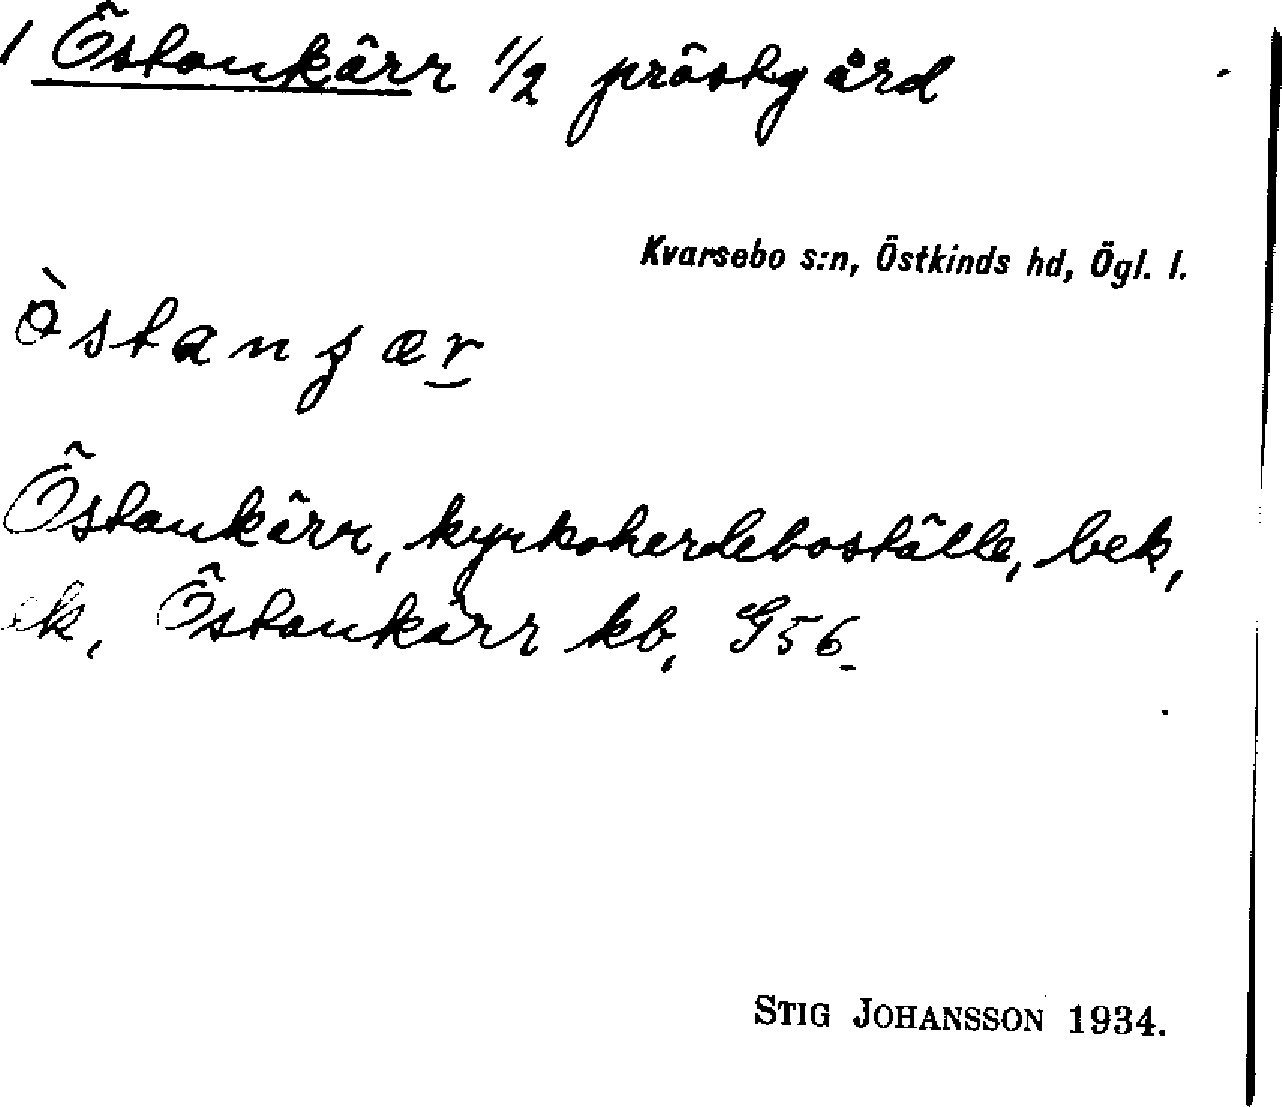 1 Östankärr 1/2 prästgård
Kvarsebo s:n, Östkinds hd, Ögl. l.
östanʒær
Östankärr, kyrkoherdeboställe, bek,
ek, Östankärr kb, G56
STIG JOHANSSON 1934.